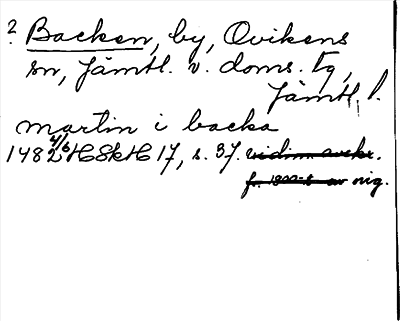 ? Backen, by, Ovikens
sn, Jämtl. v. doms. tg,
Jämtl. l.
martin i backa
1482 4/6 HSkH 17, s. 37. vidim. avskr.
fr. 1500-t. av nig.